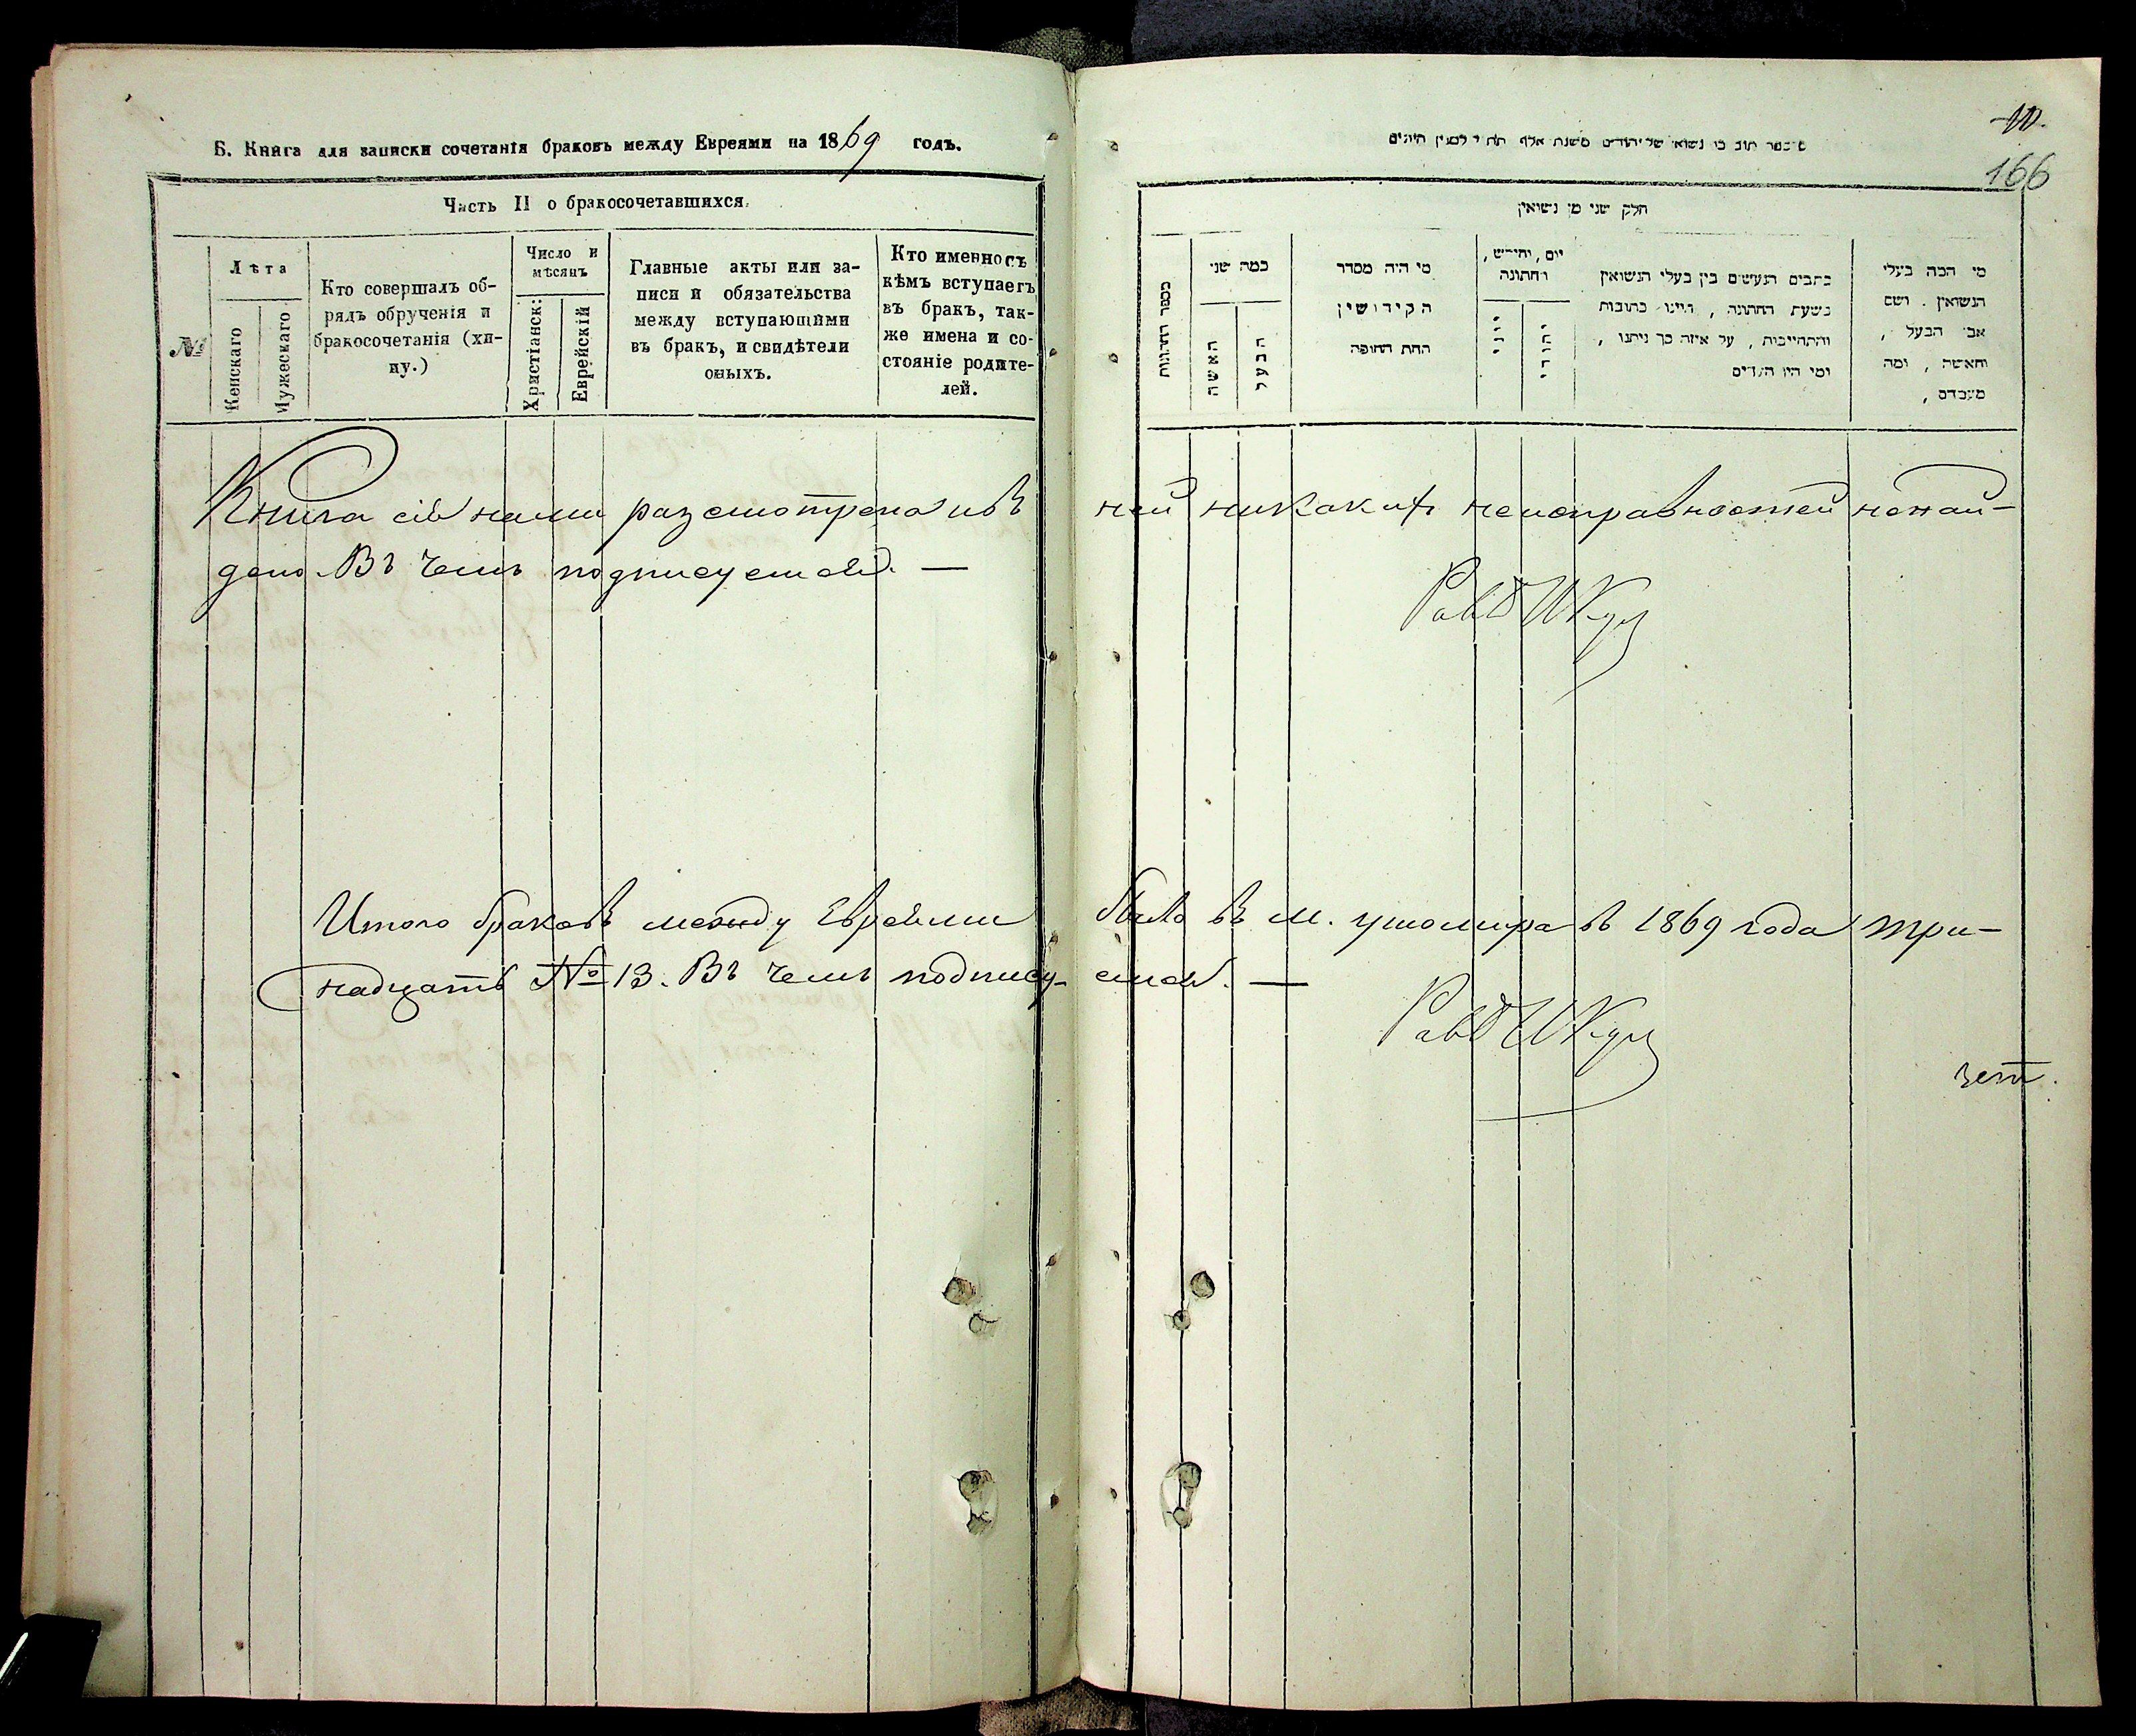 Б. Книга для записки сочетанія браковъ между Евреями на 1869 годъ.
Часть II о бракосочетавшихся.
№
Лѣта
Женскаго
Мужескаго
Кто совершалъ об-
рядъ обрученія и
бракосочетанія (хи-
пу.)
Число и
мѣсяцъ
Христіанскі:
Еврейскій
Главные акты или за-
писи и обязательства
между вступающими
въ бракъ, и свидѣтели
оныхъ.
Кто именно съ
кѣмъ вступаетъ
въ бракъ, так-
же имена и со-
стояніе родите-
лей.
10.
166
חלק שני מן נשואין
מספר החתונות
כמה שני
האשה
הבעל
מי היה מסדר
הקידושין
תחת החופה
יום, וחידש,
החתונה
יוני
יהודי
כתבים הנעשים בין בעלי הנשואין
בשעת החתונה, היינו כתובות
והתחייבות, על איזה סך ניתנו,
ומי היו העדים
מי המה בעלי
הנשואין. ושם
אבי הבעל,
והאשה, ומה
מעמדם,
Книга сія нами разсмотрена ивъ ней никакихъ неисправностей ненай-
дено. Въ чемъ подписуемся. —
Итого браковъ между Евреями было въ м. ушомира въ 1869 года три-
надцать № 13. Въ чемъ подпису- емся. —